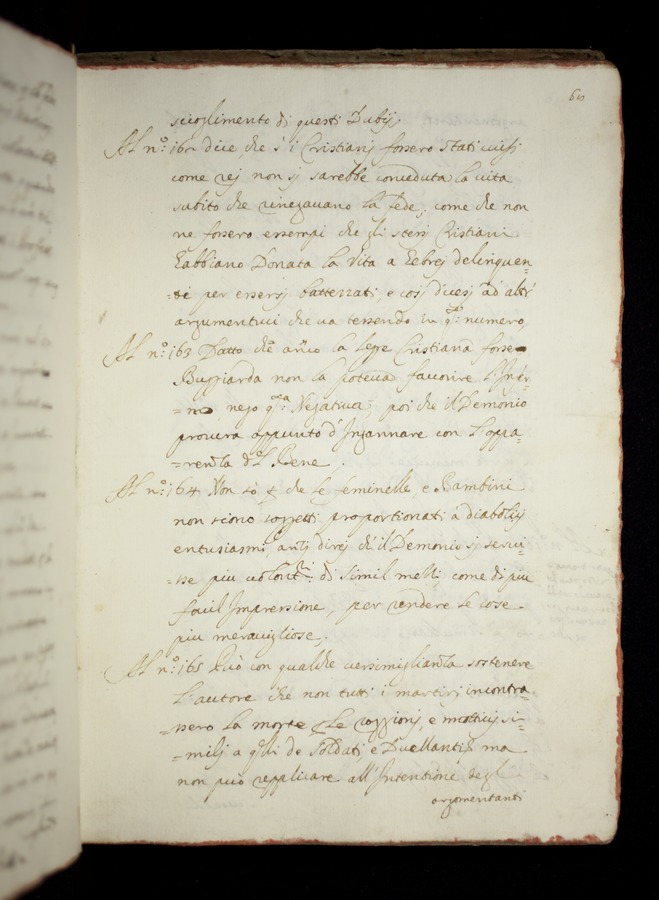 60
scioglimento di questi Dubij
Al n.º 162 dice, che s' i Cristianj fossero stati uccisj
come rej non si sarebbe conceduta la vita
subito che rinegavano la fede, come che non
ne fossero essempi che gli stessi Cristiani
habbiano Donata la vita a Hebrej delinquen=
=ti per essersj battezzati, e cosj dicasj ad altrj
argumentucci che va tessendo in q.º numero,
Al n.º 163 Datto che anco la legge Cristiana fosse
Buggiarda non la poteva favorire l'Infer=
=no, nego q.ª Negativa, poi che il Demonio
procura appunto d'Ingannare con l'appa=
=renza del Bene.
Al n.º 164 Non sò che le feminelle, e Bambini
non siono soggetti proportionati à diabolicj
entusiasmi, anzj direj ch' il Demonio si servi=
=sse piu di simil come di piu
facil Impressione, per rendere le cose
piu meravigliose,
Al n.º 165 Può con qualche verisimiglianza sostenere
l'autore che non tutti i martirj incontra=
=ssero la morte le caggionj, e mottivj si=
=milj a q.lli de Soldati, e Duellanti ma
non può applicare all'Intentione degl'
argomentanti